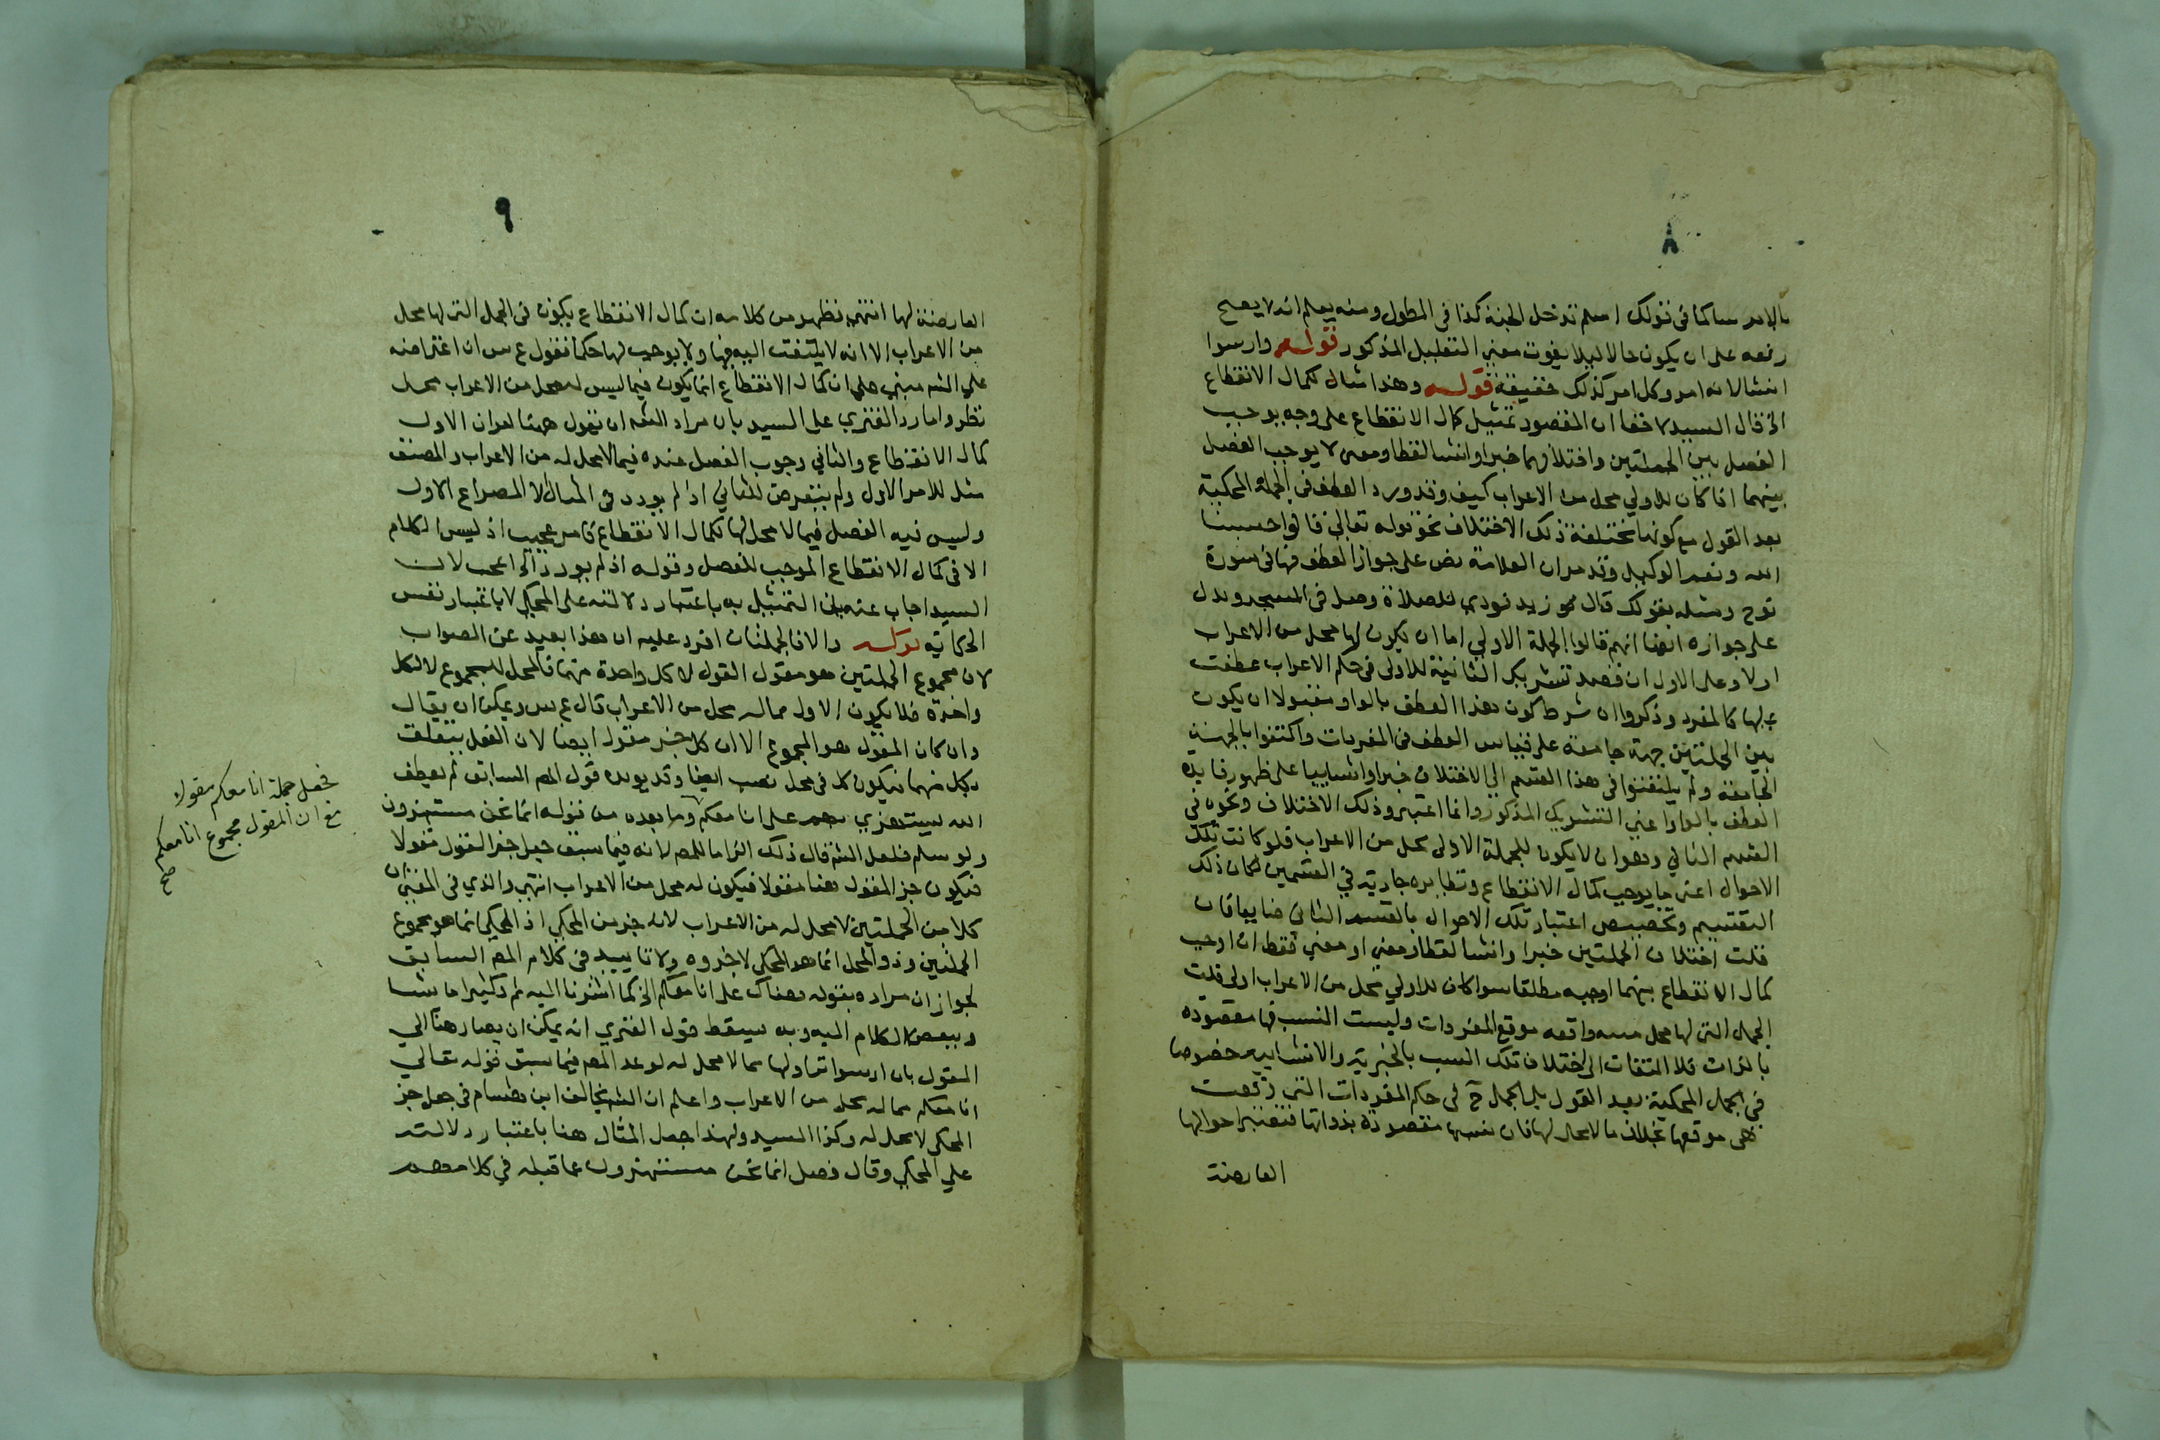 ٨
بالامر سا كما فى قولك اسلم تدخل الجنة كذا فى المطول ومنه يعلم انه لا يصح
رفعه على ان يكون حالا ليلا يفوت معنى التعليل المذكور قوله وارسوا
انشا لانه امر وكل امر كذلك حقيقة قوله وهذا مثال لكمال الانقطاع
الخ قال السيد لا خفا ان المقصود تمثيل كمال الانقطاع على وجه يوجب
الفصل بين الجملتين واختلافهما خبرا وانشا لفظا ومعنى لا يوجب الفصل
بينهما اذا كان للاولي محل من الاعراب كيف وقد ورد العطف فى الجملة المحكية
بعد القول مع كونها مختلفة ذلك الاختلاف نحو قوله تعالى قالوا حسبنا
الله ونعم الوكيل وقد مر ان العلامة نص على جواز العطف فيها فى سورة
نوح ومثله بقولك قال زيد نودي للصلاة وصل فى المسجد ويدل
على جوازه ايضا انهم قالوا الجملة الاولي اما ان يكون لها محل من الاعراب
اولا وعلى الاول ان قصد تشريك الثانية للاولى فى حكم الاعراب عطفت
عليها كالمفرد وذكروا ان شرط كون هذا العطف بالواو مقبولا ان يكون
بين الجملتين جهة جامعة على قياس العطف فى المفردات واكتفوا بالجهة
الجامعة ولم يلتفتوا فى هذا القسم الى الاختلاف خبرا وانشاييا على ظهور فايدة
العطف بالواو اعنى التشريك المذكور وانما اعتبروا ذلك الاختلاف ونحوه فى
القسم الثاني وهو ان لا يكون للجملة الاولى محل من الاعراب فلو كانت تلك
الاحوال اعنى ما يوجب كمال الانقطاع ونظايره جارية في القسمين لكان ذلك
التقسيم وتخصيص اعتبار تلك الاحوال بالقسم الثانى ضايعا فان
قلت اختلاف الجملتين خبرا وانشا لفظا ومعنى او معنى فقط ان اوجب
كمال الانقطاع بينهما اوجبه مطلقا سوا كان للاولي محل من الاعراب اولى قلت
الجمل التى لها محل منه واقعه موقع المفردات وليست النسب فيها مقصوده
بالذات فلا التفات الى اختلاف تلك النسب بالخبرية والانشاييه خصوصا
فى الجمل المحكية بعد القول بل الجمل ح فى حكم المفردات التى وقعت
هى موقعها بخلاف ما لا محل لها فان نسبها مقصودة بذواتها فتعتبر احوالها
العارضة
٩
العارضة لها انتهى فظهر من كلامه ان كمال الانقطاع يكون فى الجمل التى لها محل
من الاعراب الا انه لا يلتفت اليه فيها ولا يوجب لها حكما فقول ع س ان اعتراضه
علي الشم مبني على ان كمال الانقطاع انما يكون فيما ليس له محل من الاعراب محل
نظر واما رد الفنري على السيد بان مراد الشم ان نقول هنا امران الاول
كمال الانقطاع والثاني وجوب الفصل عنده فيما لا محل له من الاعراب والمصنف
مثل للامر الاول ولم يتعرض للثاني اذ لم يورد فى المثال الا المصراع الاول
وليس فيه الفصل فيما لا محل لها لكمال الانقطاع فامر عجيب اذ ليس الكلام
الا فى كمال الانقطاع الموجب للفصل وقوله اذ لم يورد الخ اعجب لان
السيد اجاب عنه بان التمثيل به باعتبار دلالته على المحكي لا باعتبار نفس
الحكاية قوله والا فالجملتان اورد عليه ان هذا بعيد عن الصواب
لان مجموع الجملتين هو مقول القول لا كل واحدة منهما فالمحل للمجموع لا لكل
واحدة فلا يكون الاول مما له محل من الاعراب قال ع س ويمكن ان يقال
وان كان المقول هو المجموع الا ان كل جز مقول ايضا لان الفعل يتعلق
بكل منهما فيكون كل فى محل نصب ايضا وقد يويده قول المص السابق لم يعطف
الله يستهزي بهم على انا معكم وما بعده من قوله انما نحن مستهزون
ولو سلم فلعل الشم قال ذلك الزاما للمص لانه فيما سبق جعل جز القول مقولا
فيكون جز المقول هنا مقولا فيكون له محل من الاعراب انتهى والذي فى المغني ان
كلا من الجملتين لا محل له من الاعراب لانه جز من المحكي اذ المحكي انما هو مجموع
الجملتين وذو المحل انما هو المحكي لا جزوه ولا تاييد فى كلام المص السابق
لجواز ان مراده بقوله هناك على انا معكم الخ كما اشرنا اليه ثم وكثيرا ما شا
وببعض الكلام اليه وبه سيقط قول الفنري انه يمكن ان يصار هنا الي
القول بان ارسوا نزاولها مما لا محل له لو عد المص فيما سبق قوله تعالي
انا معكم مما له محل من الاعراب واعلم ان الشم يخالف ابن هشام فى جعل جز
المحكي لا محل له وكذا السيد ولهذا جعل المثال هنا باعتبار دلالته
علي المحكي وقال فصل انما نحن مستهزون عما قبله في كلامهم
فجعل جملة انا معكم مقولا
مع ان المقول مجموع انا معكم
صح